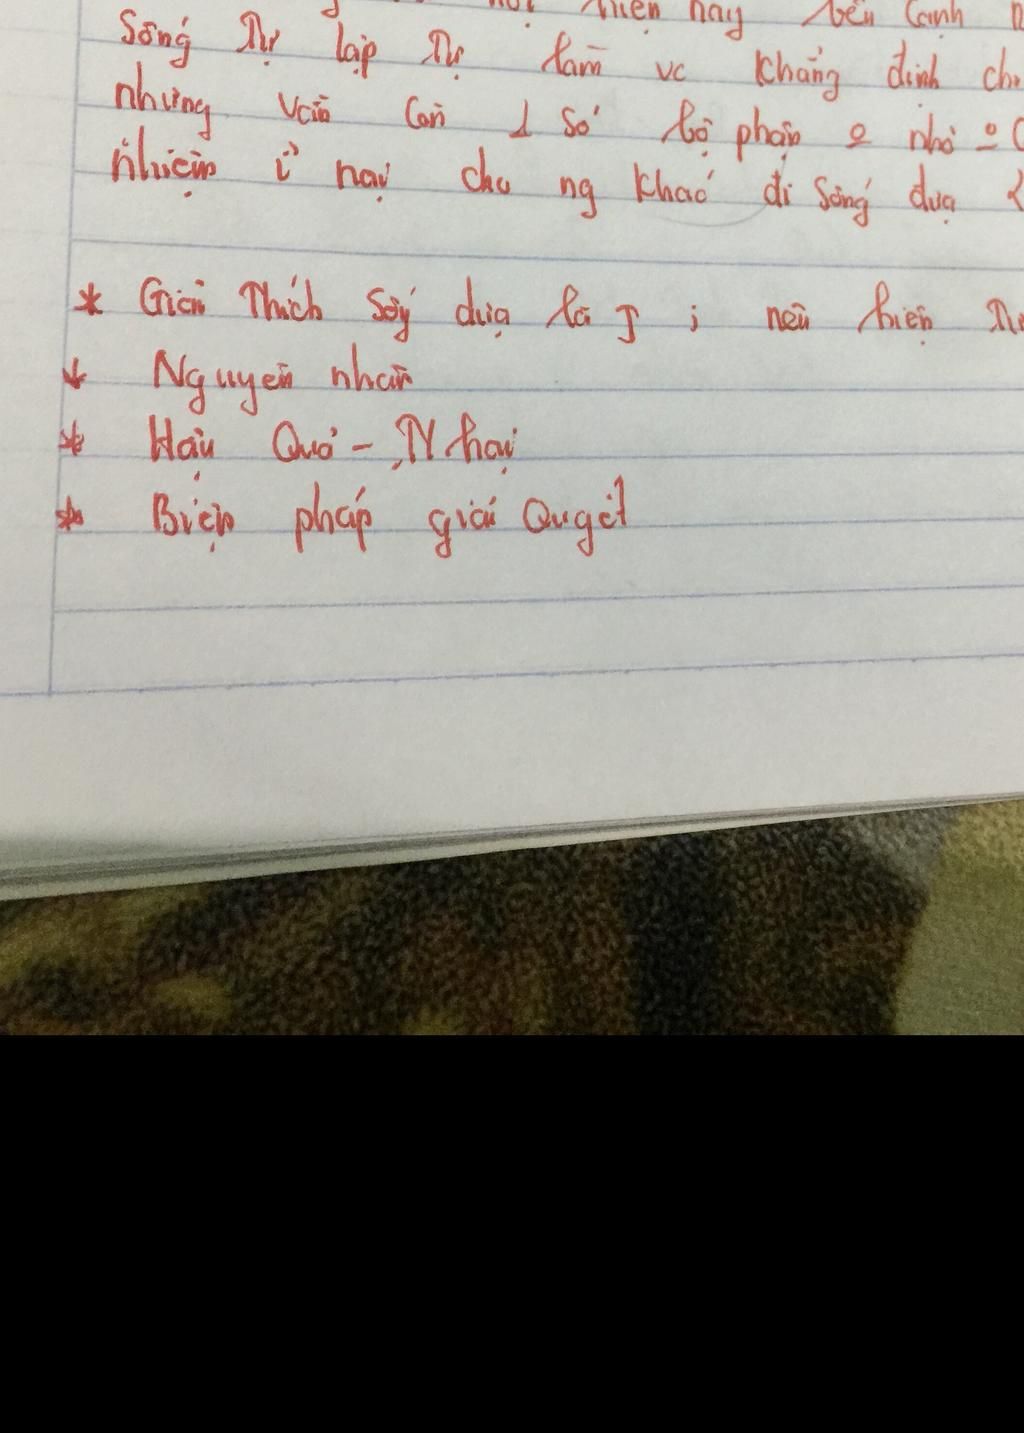 hiện nay bên cạnh
Sống Tự lập Tự làm vc khẳng định
nhưng vẫn còn 1 số bộ phận nhỏ
nhiệm ỉ nại cho ng khác đi sống dựa
* Giải Thích sống dựa là J ; nêu hiện
* Nguyên nhân
* Hậu Quả - hại
* Biện pháp giải Quyết